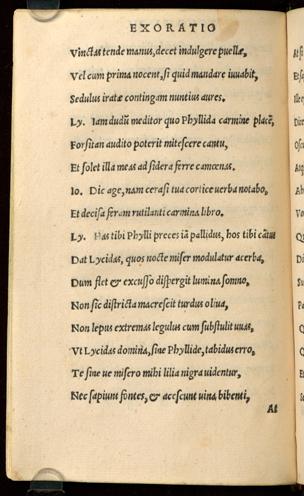 EXORATIO
Vinctas tende manus, decet indulgere puellæ,
Vel cum prima nocent, si quid mandare iuuabit,
Sedulus iratæ contingam nuntius aures.
Ly. Iam dudũ meditor quo Phyllida carmine placẽ,
Forsitan audito poterit mitescere cantu,
Et solet illa meas ad sidera ferre camœnas.
Io. Dic age, nam cerasi tua cortice uerba notabo,
Et decisa feram rutilanti carmina libro.
Ly. Has tibi Phylli preces iã pallidus, hos tibi cãtus
Dat Lycidas, quos nocte miser modulatur acerba,
Dum flet & excusso dispergit lumina somno,
Non sic districta macrescit turdus oliua,
Non lepus extremas legulus cum substulit uuas,
Vt Lycidas domina, sine Phyllide, tabidus erro,
Te sine uę misero mihi lilia nigra uidentur,
Nec sapiunt fontes, & acescunt uina bibenti,
At